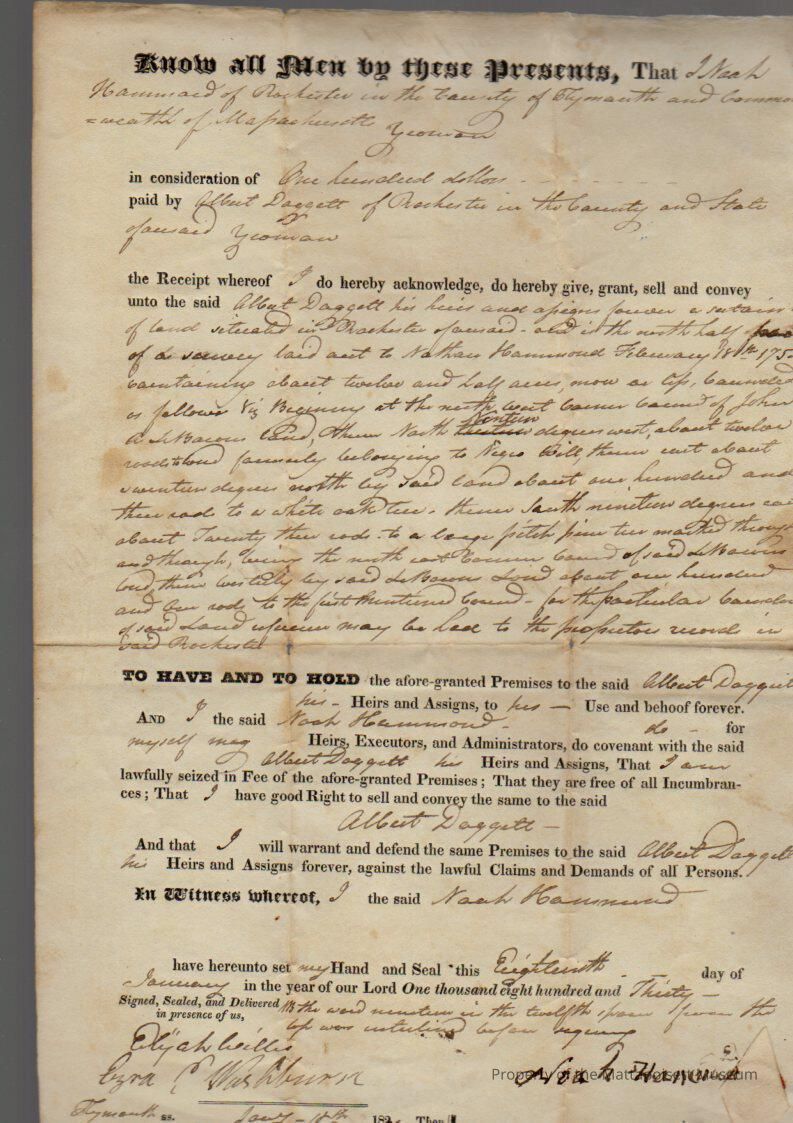 Know all Men by these Presents, That I Noah
Hammond of Rochester in the County of Plymouth and Common
=wealth of Massachusetts Yeoman
in consideration of One hundred dollars
paid by Albert Daggett of Rochester in the County and State
aforesaid Yeoman
the Receipt whereof I do hereby acknowledge, do hereby give, grant, sell and convey
unto the said Albert Daggett his heirs and assigns forever a certain
of land situated in Rochester aforesaid - and is the north half
of a survey laid out to Nathan Hammond February 18th 175
containing about twelve and half acres, more or less, bounded
as follows Viz Begining at the north west corner bound of John
A LeBarons land, thence North Ninteen degrees west, about twelve
rods to land formerly belonging to Negro Will, thence east about
seventeen degrees north by said land about one hundred and
three rods to a white oak tree. thence South nineteen degrees ea
about Twenty three rods to a large pitch pine tree marked through
and through, being the north east Corner bound of said LeBarons
land, thence westerly by said LeBarons Land about one hundred
and one rods to the first mentioned bound - for the particular bounds
of said Land reference may be had to the proprietors records in
said Rochester
TO HAVE AND TO HOLD the afore-granted Premises to the said Albert Daggett
his - Heirs and Assigns, to his — Use and behoof forever.
AND I the said Noah Hammond - do - for
myself my Heirs, Executors, and Administrators, do covenant with the said
Albert Daggett his Heirs and Assigns, That I am
lawfully seized in Fee of the afore-granted Premises; That they are free of all Incumbran-
ces; That I have good Right to sell and convey the same to the said
Albert Daggett —
And that I will warrant and defend the same Premises to the said Albert Daggett
his Heirs and Assigns forever, against the lawful Claims and Demands of all Persons.
In Witness whereof, I the said Noah Hammond
have hereunto set my Hand and Seal this Eighteenth - day of
January in the year of our Lord One thousand eight hundred and Thirty —
Signed, Sealed, and Delivered the word nineteen in the twelfth from the
in presence of us, top was interlined before signing
Elijah Willis
Ezra C Washburn Noah Hammond
Property of the Mattapoisett Museum
Plymouth ss. Jany - 18th 18 Then